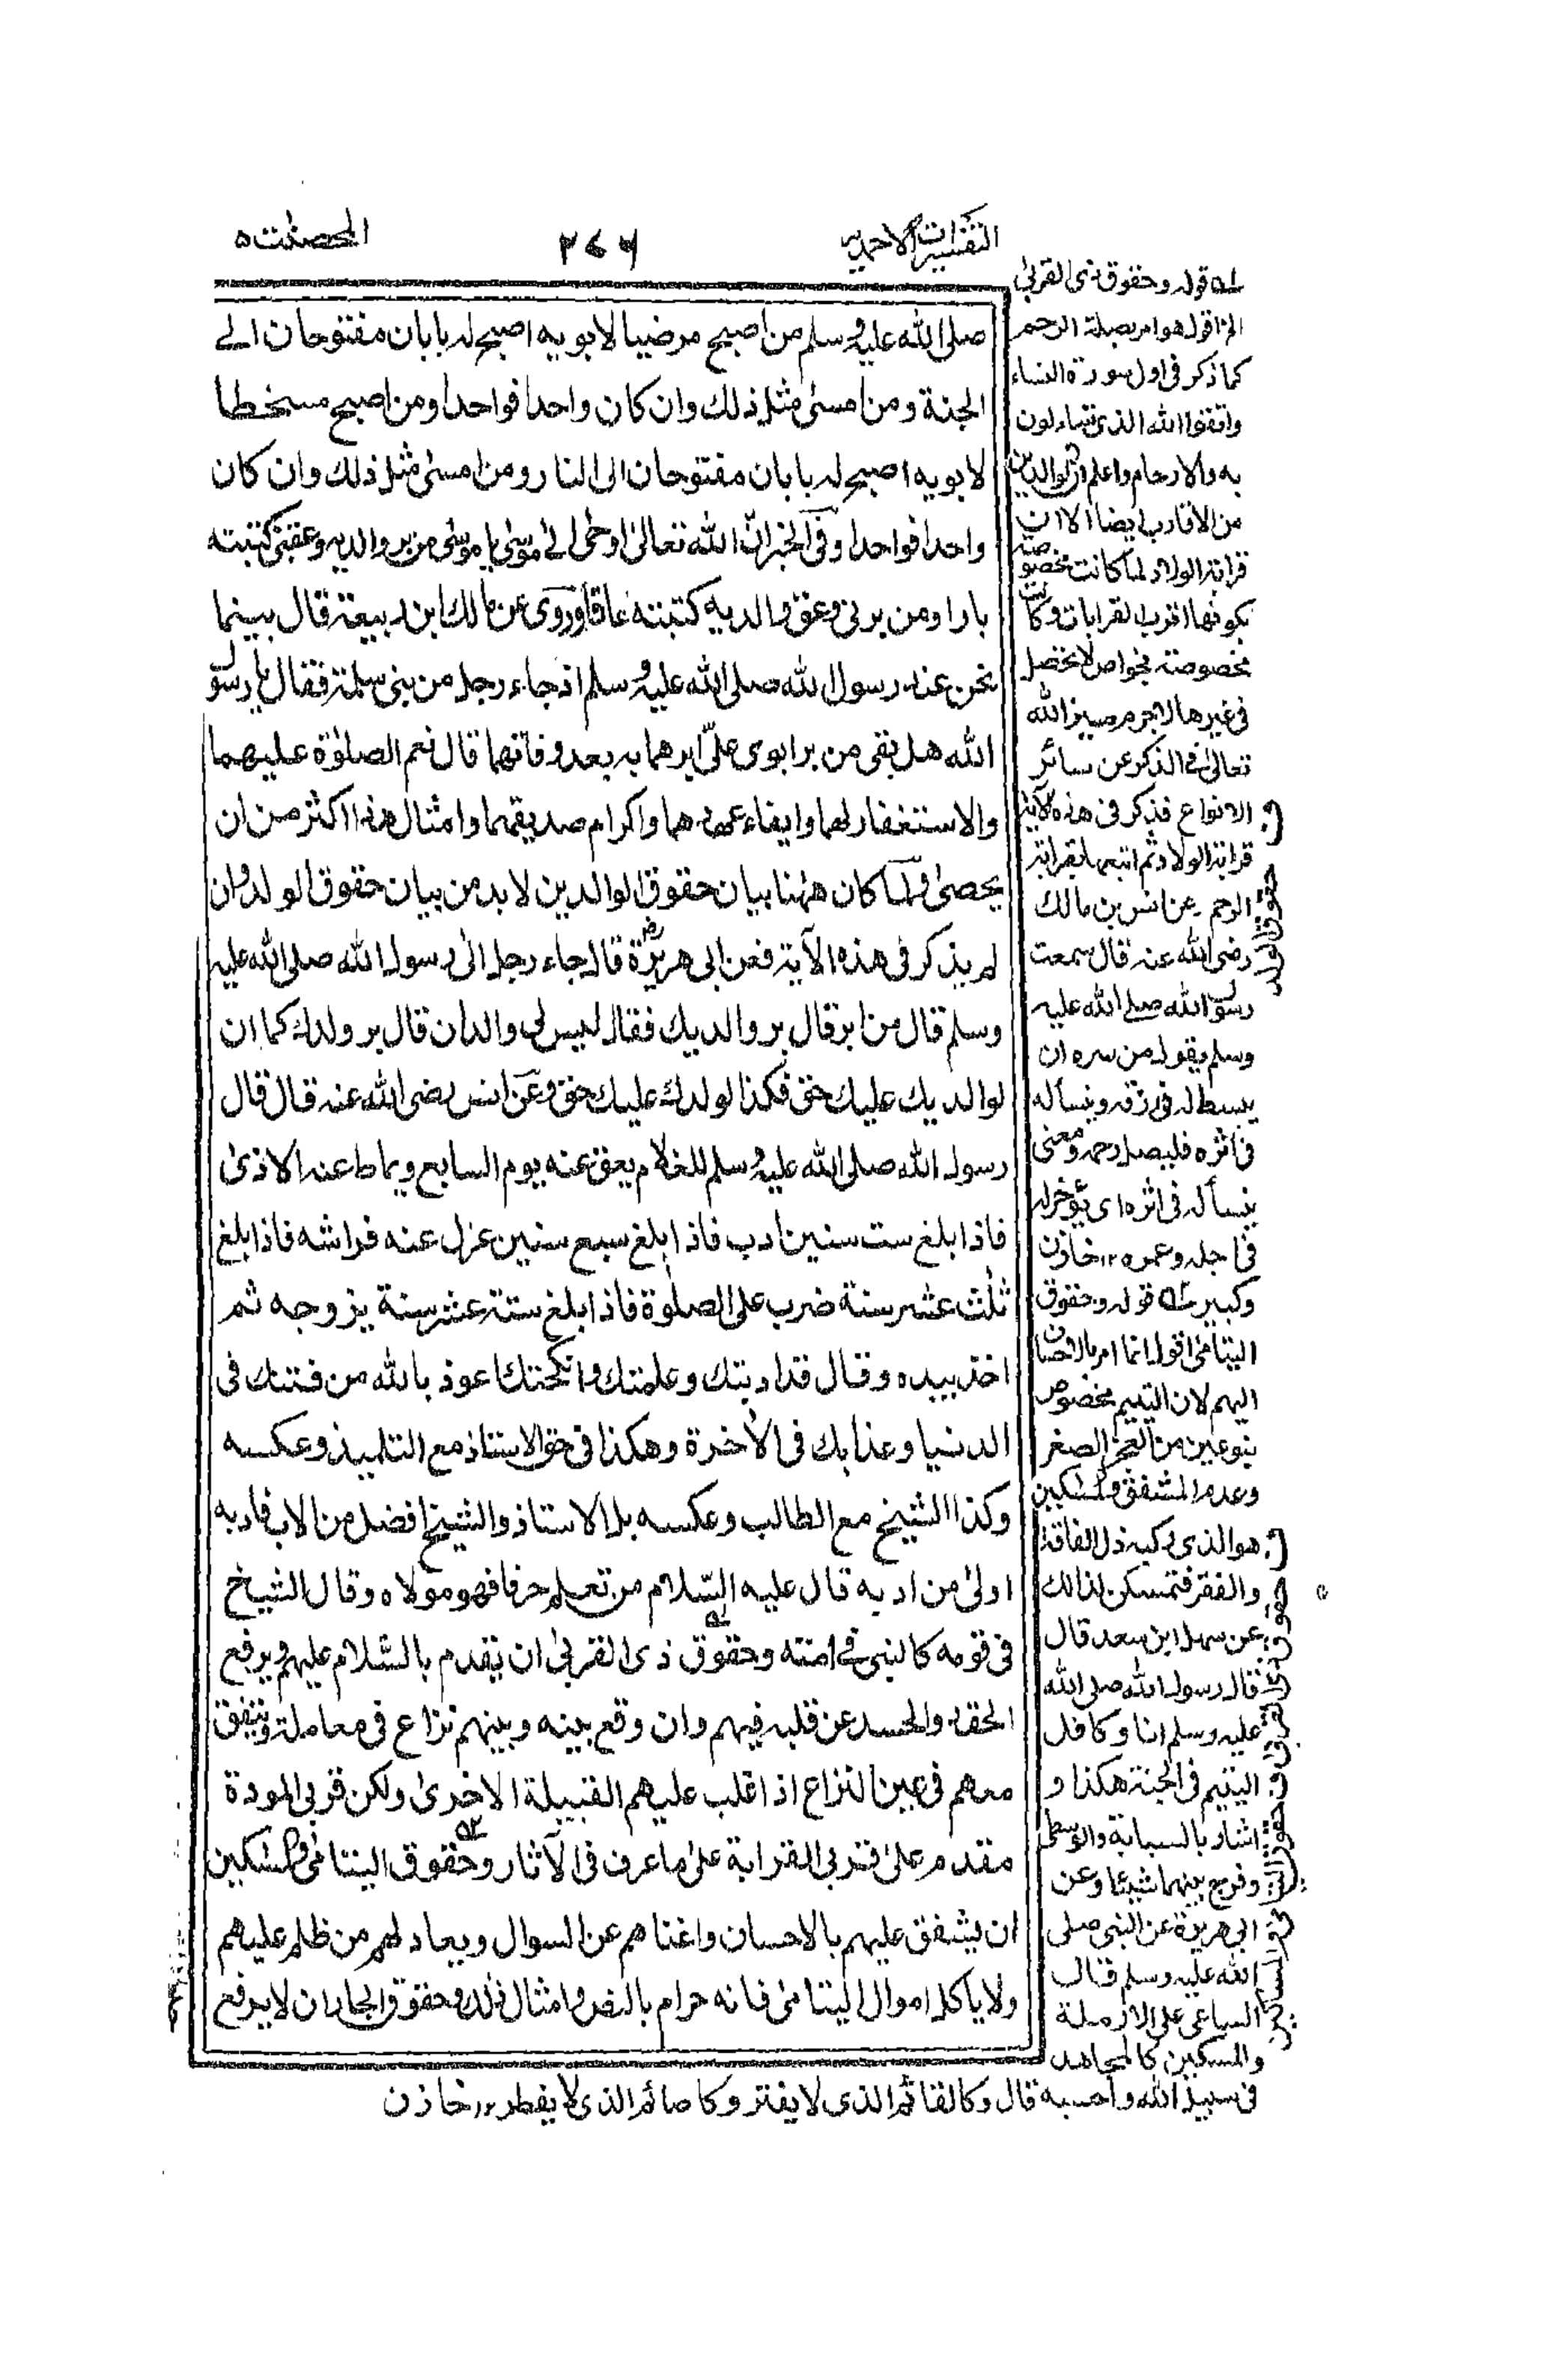 التفسيرات الاحمدية
٢٧٦
المحصنت ٥
صلى الله عليه وسلم من اصبح مرضيا لابويه اصبح له بابان مفتوحان الى
الجنة ومن امسى مثل ذلك وان كان واحدا فواحدا ومن اصبح مسخطا
لابويه اصبح له بابان مفتوحان الى النار ومن امسى مثل ذلك وان كان
واحدا فواحدا وفى الخبر انّ الله تعالىٰ اوحى الى موسىٰ يا موسىٰ من بر والديه وعقنى كتبته
بارا ومن برنى وعق والديه كتبته عاقا وروى عن مالك ابن ربيعة قال بينما
نحن عند رسول الله صلى الله عليه وسلم اذ جاء رجل من بنى سلمة فقال يا رسول
الله هل بقى من بر ابوى علىّ ابرهما به بعد وفاتهما قال نعم الصلوٰة عليهما
والاستغفار لهما وايفاء عهدهما واكرام صديقهما وامثال هذا اكثر من ان
يحصى ولما كان هٰهنا بيان حقوق الوالدين لابد من بيان حقوق الولد وان
لم يذكر فى هذه الآية فعن ابى هريرة رض قال جاء رجل الى رسول الله صلى الله عليه
وسلم قال من ابر قال بر والديك فقال ليس لى والدان قال بر ولدك كما ان
لوالديك عليك حق فكذا لولدك عليك حق وعن انس رضى الله عنه قال قال
رسول الله صلى الله عليه وسلم للغلام يعق عنه يوم السابع ويماط عنه الاذىٰ
فاذا بلغ ست سنين ادب فاذا بلغ سبع سنين عزل عنه فراشه فاذا بلغ
ثلٰث عشر سنة ضرب على الصلوٰة فاذا بلغ ستة عشر سنة يزوجه ثم
اخذ بيده وقال قد ادبتك وعلمتك وانكحتك اعوذ بالله من فتنتك فى
الدنيا وعذابك فى الاٰخرة وهكذا فى حق الاستاذ مع التلميذ وعكسه
وكذا الشيخ مع الطالب وعكسه بل الاستاذ والشيخ افضل من الاب فادبه
اولىٰ من ادبه قال عليه السّلام من تعلم حرفا فهو مولاه وقال الشيخ
فى قومه كالنبى فى امته وحقوق ذى القربىٰ ان يقدم بالسّلام عليهم ويرفع
الحقد والحسد عن قلبه فيهم وان وقع بينه وبينهم نزاع فى معاملة ويتفق
معهم فى عين النزاع اذا غلب عليهم القبيلة الاخرىٰ ولكن قربى المودة
مقدم علىٰ قربى القرابة علىٰ ما عرف فى الآثار وحقوق اليتامىٰ والمسٰكين
ان يشفق عليهم بالاحسان واغناهم عن السوال ويعاد لهم من ظلم عليهم
ولا ياكل اموال اليتامىٰ فانه حرام بالنص وامثال ذلك وحقوق الجار ان لا يرفع
لـه قوله وحقوق ذى القربىٰ
الخ اقول هو امر بصلة الرحم
كما ذكر فى اول سورة النساء
واتقوا الله الذى تساءلون
به والارحام واعلم ان الوالدين
من الاقارب ايضا الا ان
قرابة الولاد لما كانت مخصوصة
بكونها اقرب القرابات وكانت
مخصوصة بخواص لا تحصل
فى غيرها لا جرم ميز الله
تعالىٰ فى الذكر عن سائر
الانواع فذكر فى هذه الآية
قرابة الولاد ثم اتبعها بقرابة
الرحم عن انس بن مالك
رضى الله عنه قال سمعت
رسول الله صلى الله عليه
وسلم يقول من سره ان
يبسط له فى رزقه وينسأ له
فى اثره فليصل رحمه ومعنى
ينسأ له فى اثره اى يؤخر له
فى اجله وعمره ١٢ خازن
وكبير ٢ـه قوله وحقوق
اليتامىٰ اقول انما امر بالاحسان
اليهم لان اليتيم مخصوص
بنوعين من العجز الصغر
وعدم المشفق والمسكين
هو الذى ركبه ذل الفاقة
والفقر فتمسكن لذالك
عن سهل ابن سعد قال
قال رسول الله صلى الله
عليه وسلم انا وكافل
اليتيم فى الجنة هكذا و
اشار بالسبابة والوسطى
وفرج بينهما شيئا وعن
ابى هريرة عن النبى صلى
الله عليه وسلم قال
الساعى على الارملة
والمسكين كالمجاهد
فى سبيل الله واحسبه قال وكالقائم الذى لا يفتر وكا صائم الذى لا يفطر ١٢ خازن
ف: حقوق الولد